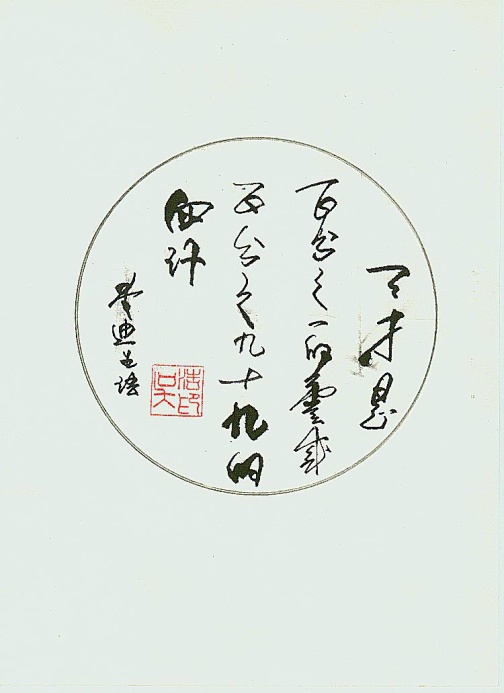 天才是
百分之一的靈感
百分之九十九的
血汗
爱迪生語